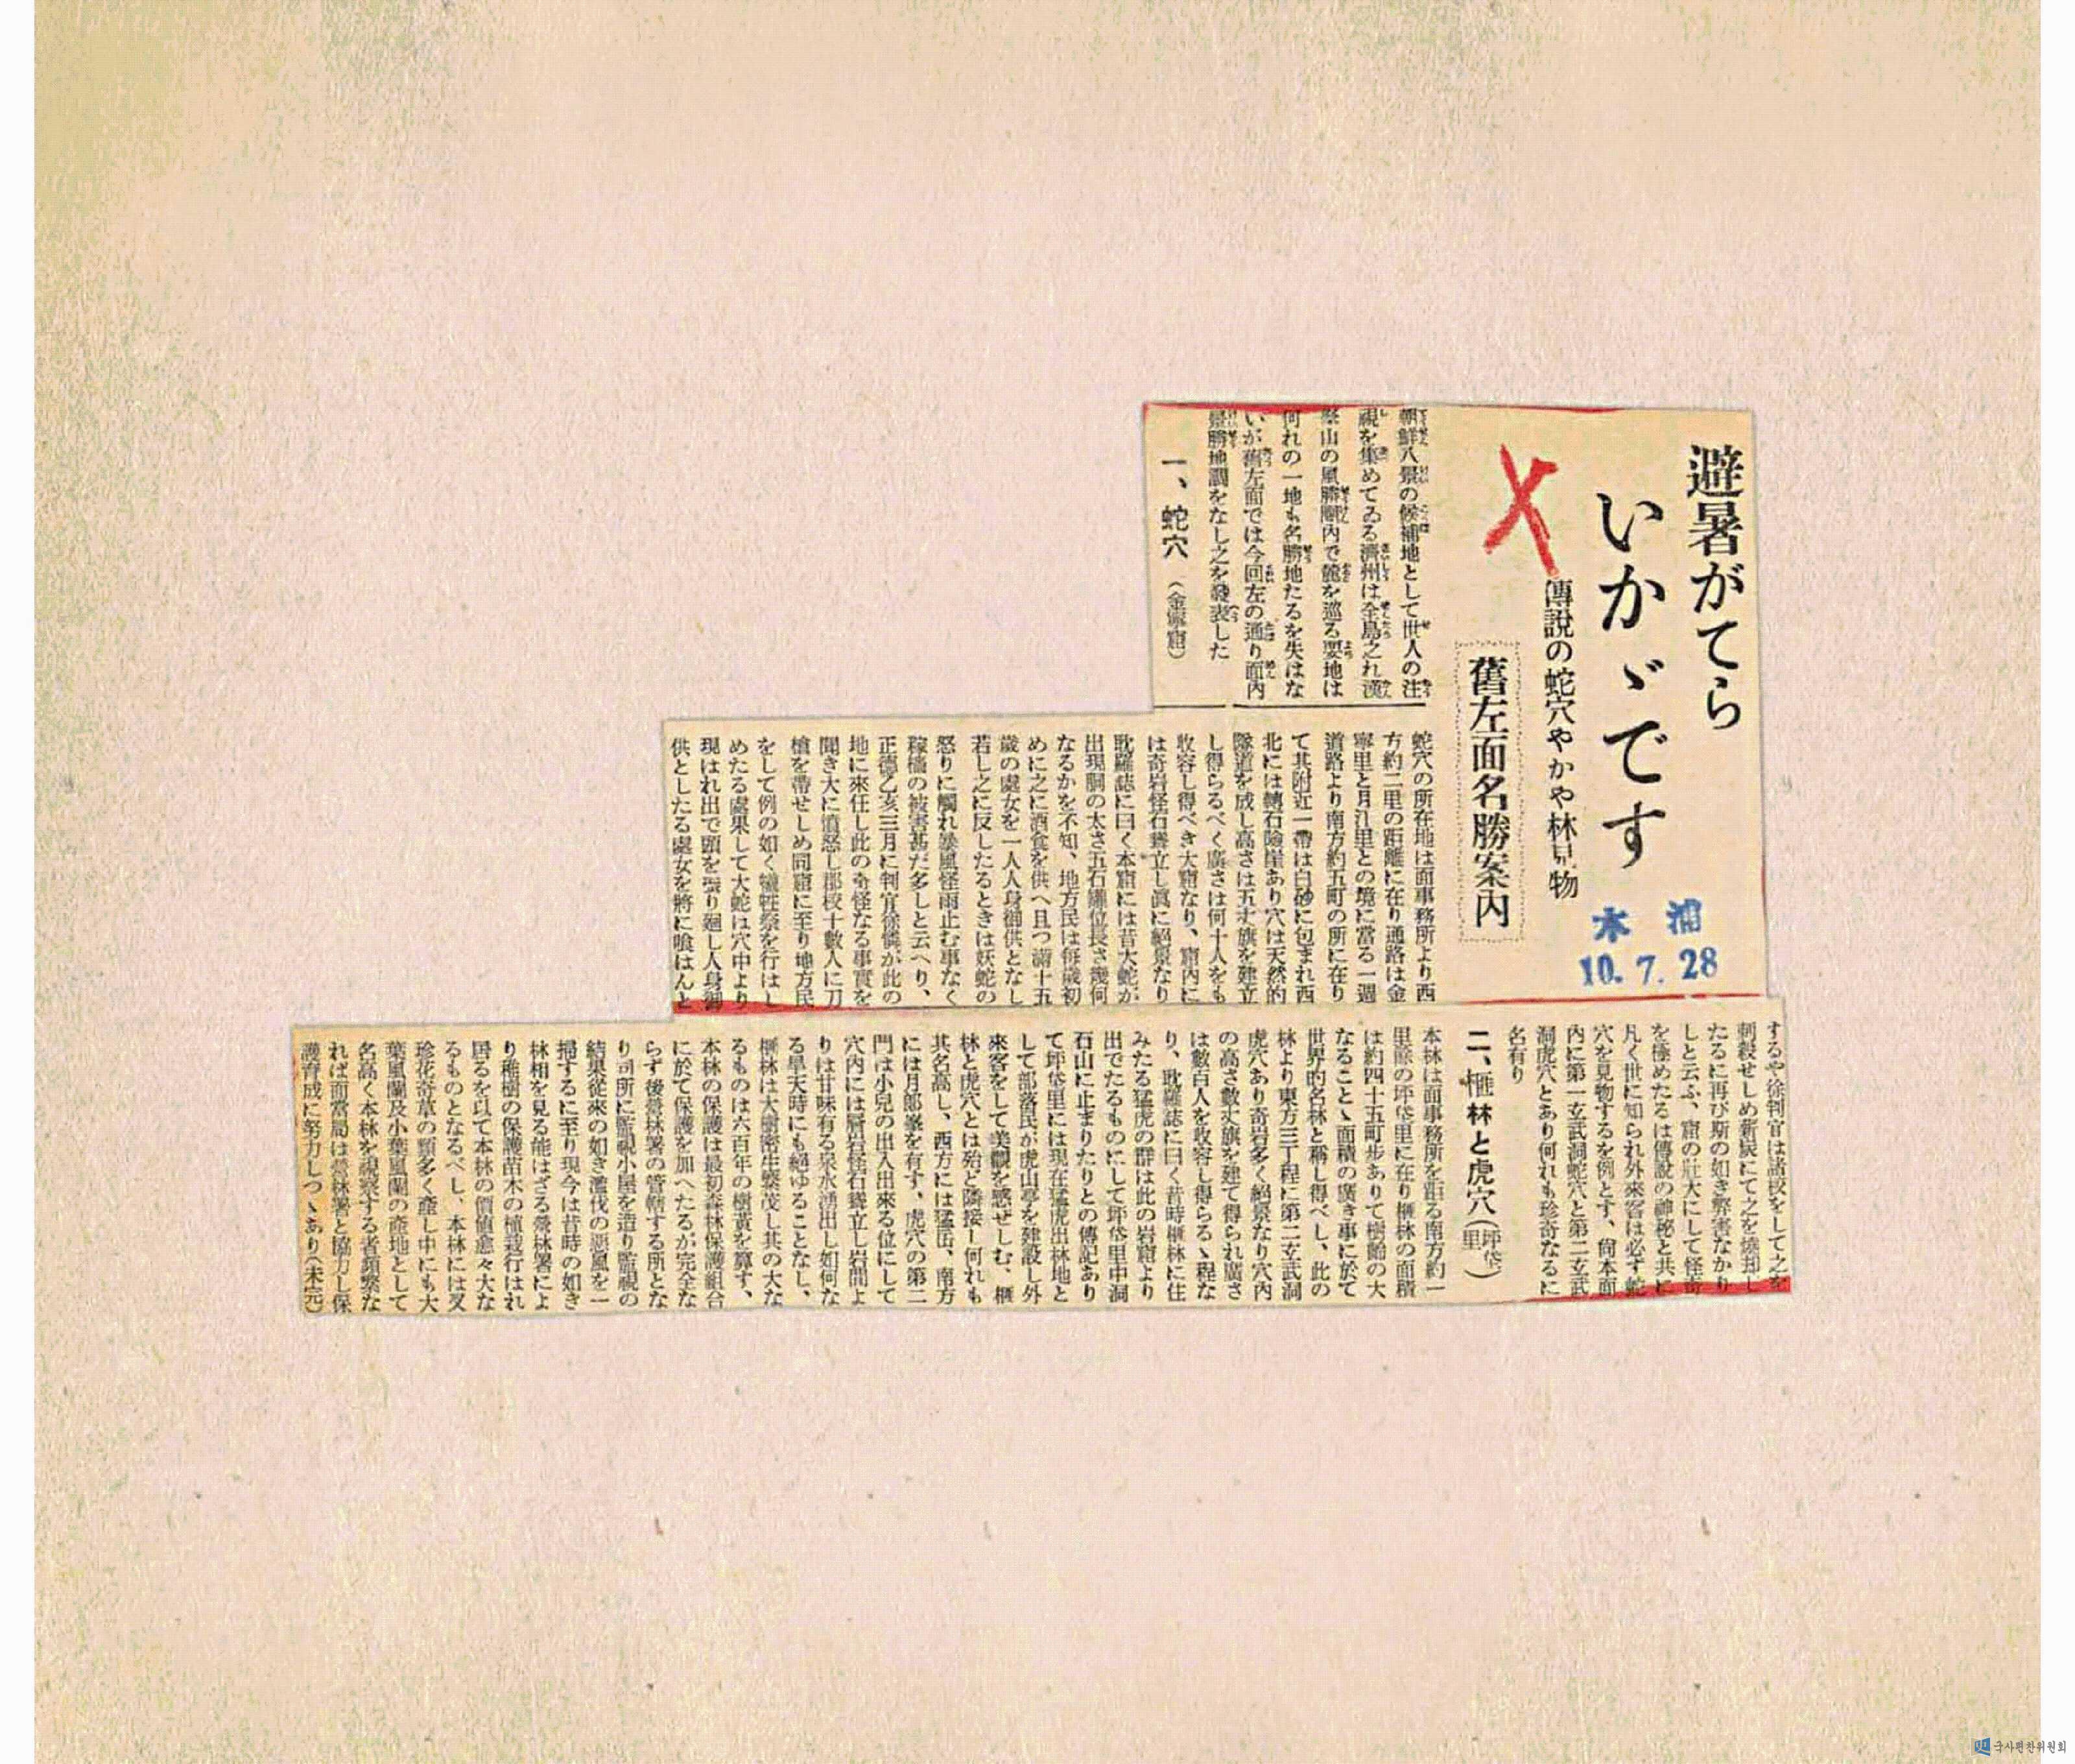 避暑がてら
いかゞです
傳說の蛇穴やかや林見物
舊左面名勝案內
木浦
10.7.28
朝鮮八景の候補地として世人の注
視を集めてゐる濟州は全島之れ漢
拏山の風勝圈內で麓を巡る要地は
何れの一地も名勝地たるを失はな
いが舊左面では今回左の通り面內
景勝地調をなし之を發表した
一、蛇穴（金寧窟）
蛇穴の所在地は面事務所より西
方約二里の距離に在り通路は金
寧里と月汀里との境に當る一週
道路より南方約五町の所に在り
て其附近一帶は白砂に包まれ西
北には轉石險崖あり穴は天然的
隧道を成し高さは五丈旗を建立
し得らるべく廣さは何十人をも
收容し得べき大窟なり、窟內に
は奇岩怪石聳立し眞に絕景なり
耽羅誌に曰く本窟には昔大蛇が
出現胴の太さ五石罐位長さ幾何
なるかを不知、地方民は每歲初
めに之に酒食を供へ且つ滿十五
歲の處女を一人人身御供となし
若し之に反したるときは妖蛇の
怒りに觸れ暴風怪雨止む事なく
稼穡の被害甚だ多しと云へり、
正德乙亥三月に判官徐憐が此の
地に來任し此の奇怪なる事實を
聞き大に憤怒し郡校十數人に刀
槍を帶せしめ同窟に至り地方民
をして例の如く犧牲祭を行はし
めたる處果して大蛇は穴中より
現はれ出で頭を張り廻し人身御
供としたる處女を將に喰はんと
するや徐判官は諸校をして之を
刺殺せしめ薪炭にて之を燒却し
たるに再び斯の如き弊害なかり
しと云ふ、窟の壯大にして怪奇
を極めたるは傳說の神秘と共に
凡く世に知られ外來客は必ず蛇
穴を見物するを例とす、尙本面
內に第一玄武洞蛇穴と第二玄武
洞虎穴とあり何れも珍奇なるに
名有り
二、榧林と虎穴（坪岱里）
本林は面事務所を距る南方約一
里餘の坪岱里に在り榧林の面積
は約四十五町步ありて樹齡の大
なること、面積の廣き事に於て
世界的名林と稱し得べし、此の
林より東方三丁程に第二玄武洞
虎穴あり奇岩多く絕景なり穴內
の高さ數丈旗を建て得られ廣さ
は數百人を收容し得らるゝ程な
り、耽羅誌に曰く昔時榧林に住
みたる猛虎の群は此の岩窟より
出でたるものにして坪岱里中洞
石山に止まりたりとの傳記あり
て坪岱里には現在猛虎出林地と
して部落民が虎山亭を建設し外
來客をして美觀を感ぜしむ、榧
林と虎穴とは殆ど隣接し何れも
其名高し、西方には猛岳、南方
には月郎峯を有す、虎穴の第二
門は小兒の出入出來る位にして
穴內には層岩怪石聳立し岩間よ
りは甘味有る泉水湧出し如何な
る旱天時にも絕ゆることなし、
榧林は大樹密生繁茂し其の大な
るものは六百年の樹黃を算す、
本林の保護は最初森林保護組合
に於て保護を加へたるが完全な
らず後營林署の管轄する所とな
り同所に監視小屋を造り監視の
結果從來の如き濫伐の惡風を一
掃するに至り現今は昔時の如き
林相を見る能はざる營林署によ
り稚樹の保護苗木の植栽行はれ
居るを以て本林の價値愈々大な
るものとなるべし、本林には又
珍花奇草の類多く產し中にも大
葉風蘭及小葉風蘭の產地として
名高く本林を視察する者頻繁な
れば面當局は營林署と協力し保
護育成に努力しつゝあり（未完）
국사편찬위원회